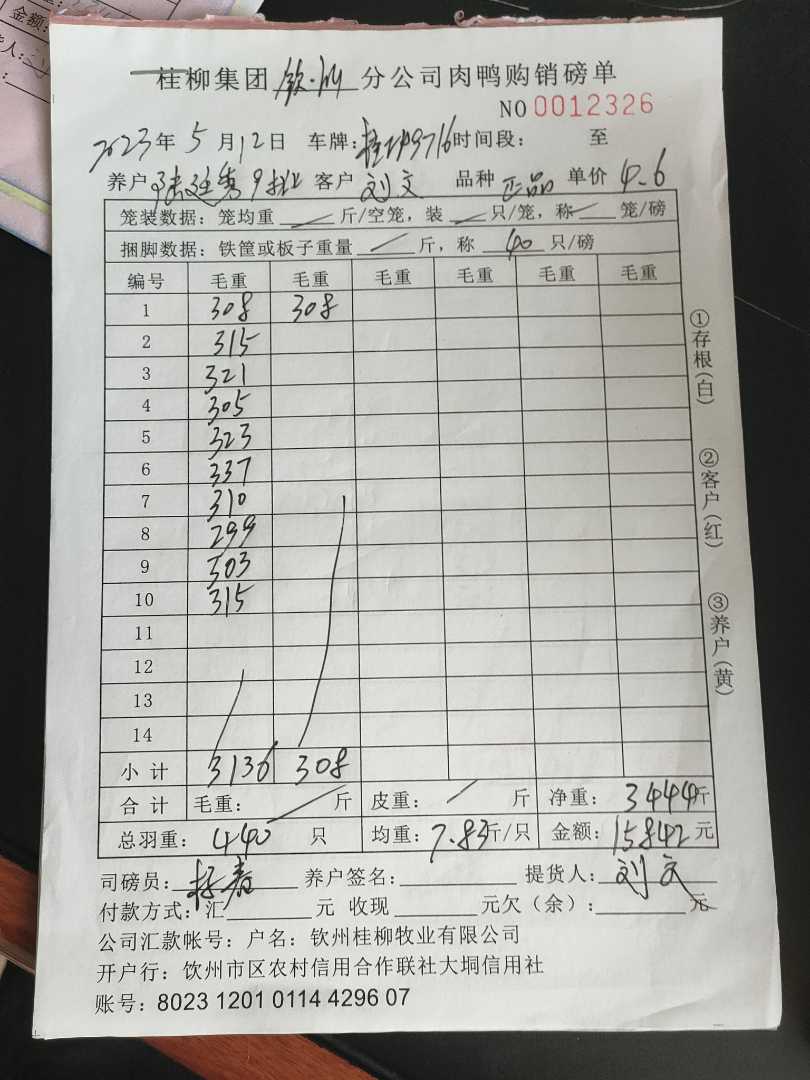 桂柳集团 钦州 分公司肉鸭购销磅单
NO 0012326
2023年5月12日 车牌: 时间段: 至
养户 客户 刘文 品种 正品 单价 4.6
笼装数据：笼均重 / 斤/空笼，装 / 只/笼，称 / 笼/磅
捆脚数据：铁筐或板子重量 / 斤，称 40 只/磅
编号 毛重 毛重 毛重 毛重 毛重 毛重
1 308 308
2 315
3 321
4 305
5 323
6 337
7 310
8 299
9 303
10 315
11
12
13
14
小计 3136 308
合计 毛重： / 斤 皮重： / 斤 净重： 3444斤
总羽重： 440 只 均重：7.83斤/只 金额：15842元
司磅员： 养户签名： 提货人：刘文
付款方式：汇 元 收现 元欠（余）： 元
公司汇款帐号：户名：钦州桂柳牧业有限公司
开户行：饮州市区农村信用合作联社大垌信用社
账号：8023 1201 0114 4296 07
①存根(白)
②客户(红)
③养户(黄)
金额: